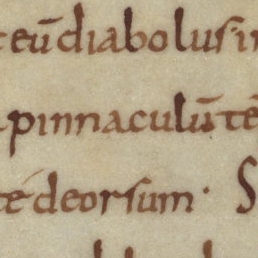 eū diabolus in
pinnaculū tē
te deorsum · S